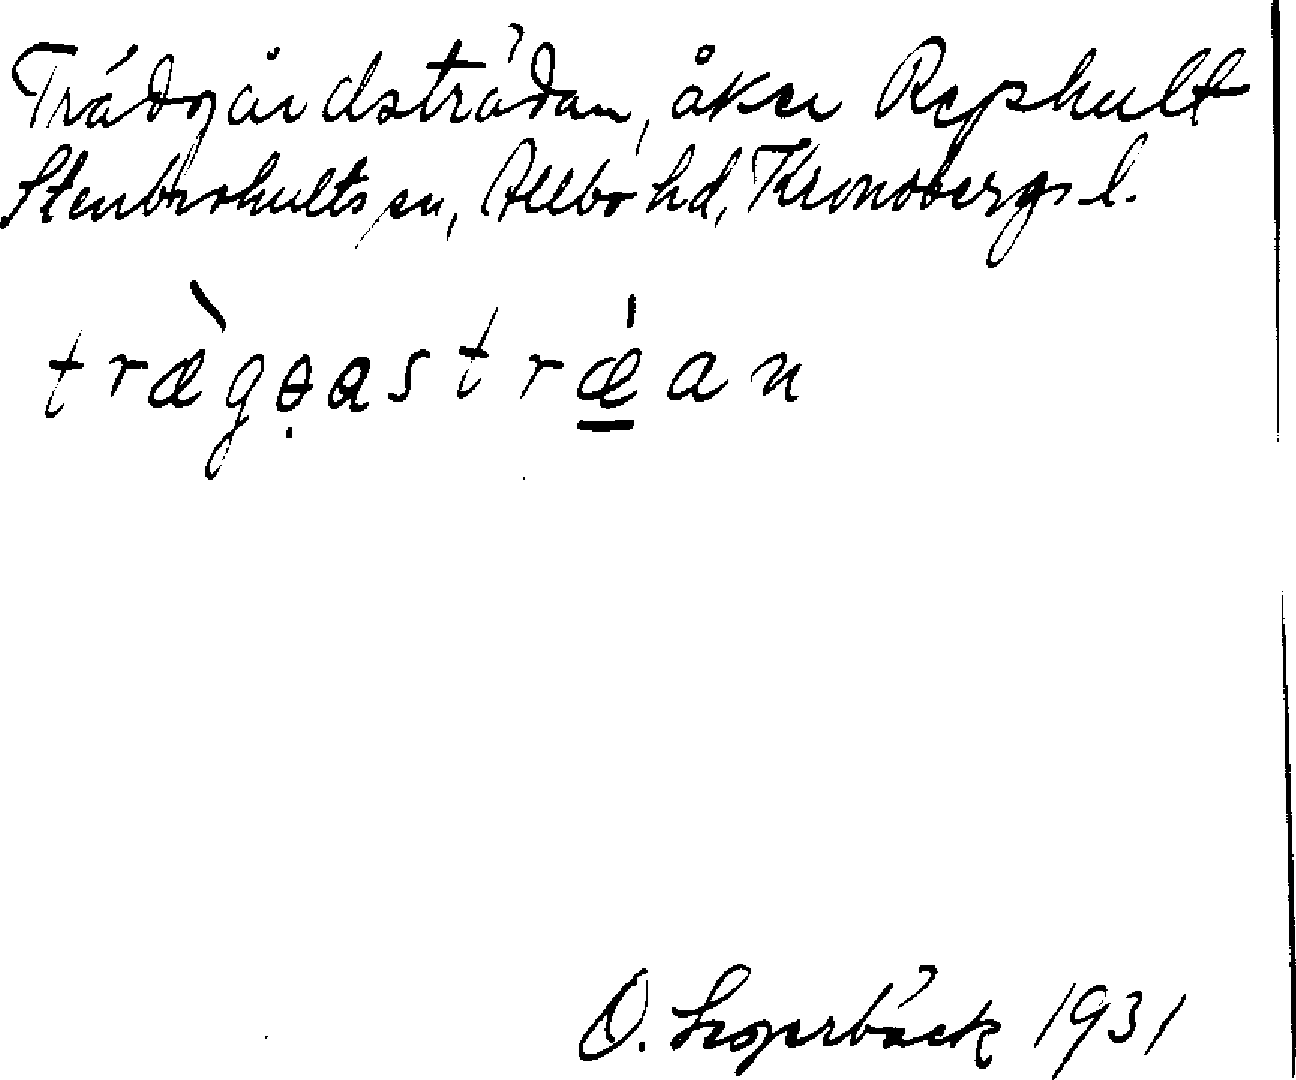 Trädgårdsträdan, åker Rephult
Stenbrohults sn, Allbo hd, Kronobergs l.
træ̀gọastrǽ̲an
O. Lagerbäck 1931